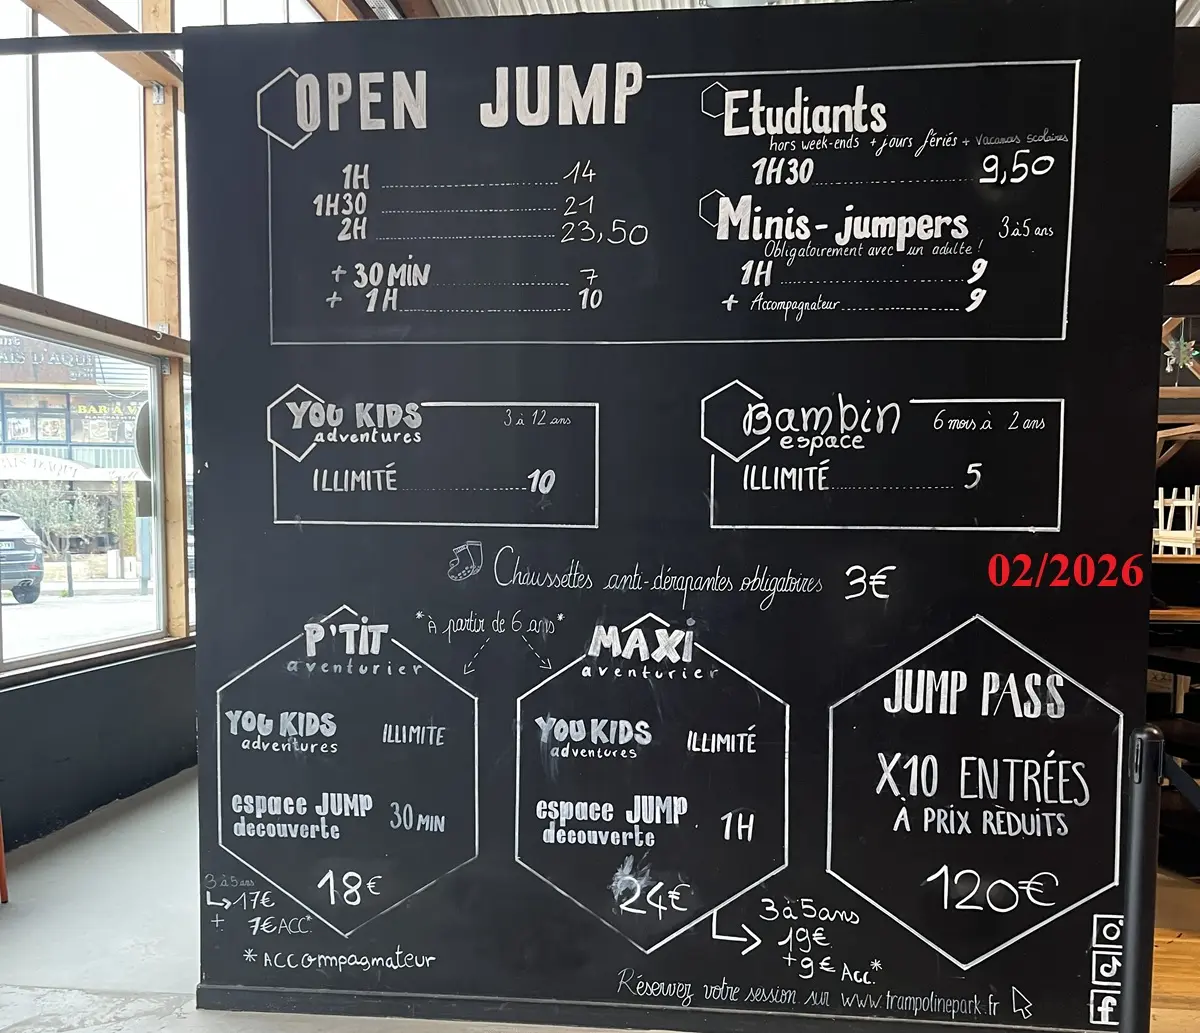 OPEN JUMP
1H 14
1H30 21
2H 23,50
+ 30 MIN 7
+ 1H 10
Etudiants
hors week-ends + jours fériés + vacances scolaires
1H30 9,50
Minis-jumpers 3 à 5 ans
Obligatoirement avec un adulte !
1H 9
+ Accompagnateur 9
YOU KIDS 3 à 12 ans
adventures
ILLIMITÉ 10
Bambin 6 mois à 2 ans
espace
ILLIMITÉ 5
Chaussettes anti-dérapantes obligatoires 3€
02/2026
*À partir de 6 ans*
P'TIT
aventurier
YOU KIDS ILLIMITE
adventures
espace JUMP 30 MIN
decouverte
18€
3 à 5 ans
17€
+ 7€ ACC*
*ACCompagnateur
MAXi
aventurier
YOU KIDS ILLIMITÉ
adventures
espace JUMP 1H
découverte
24€
3 à 5 ans
19€
+9€ Acc.*
JUMP PASS
X10 ENTRÉES
À PRIX RÈDUITS
120€
Réservez votre session sur www.trampolinepark.fr
BAR À